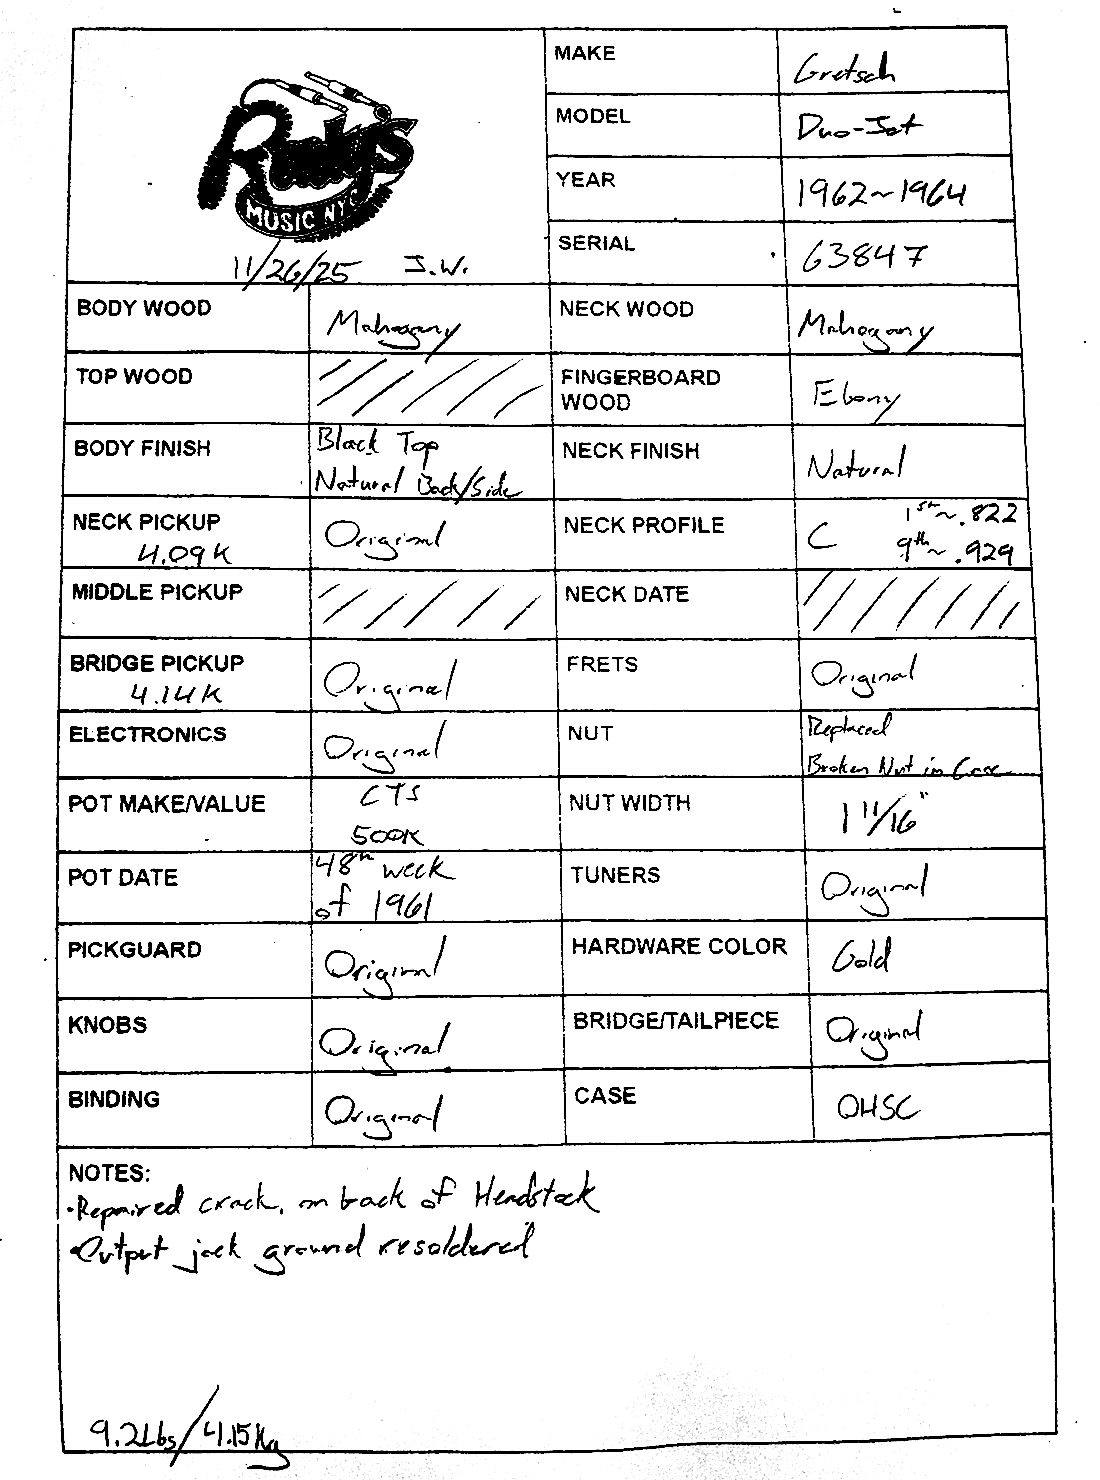 Rudy's
MUSIC NYC
11/26/25 J.W.
MAKE Gretsch
MODEL Duo-Jet
YEAR 1962~1964
SERIAL 63847
BODY WOOD Mahogany
NECK WOOD Mahogany
TOP WOOD
FINGERBOARD
WOOD
Ebony
BODY FINISH
Black Top
Natural Back/Side
NECK FINISH Natural
NECK PICKUP
4.09K
Original
NECK PROFILE
C
1st ~ .822
9th ~ .929
MIDDLE PICKUP
NECK DATE
BRIDGE PICKUP
4.14K
Original
FRETS Original
ELECTRONICS Original
NUT
Replaced
Broken Nut in Case
POT MAKE/VALUE
CTS
500K
NUT WIDTH 1 11/16"
POT DATE
48th week
of 1961
TUNERS Original
PICKGUARD Original
HARDWARE COLOR Gold
KNOBS Original
BRIDGE/TAILPIECE Original
BINDING Original
CASE OHSC
NOTES:
•Repaired crack, on back of Headstock
•Output jack ground resoldered
9.2Lbs/4.15Kg